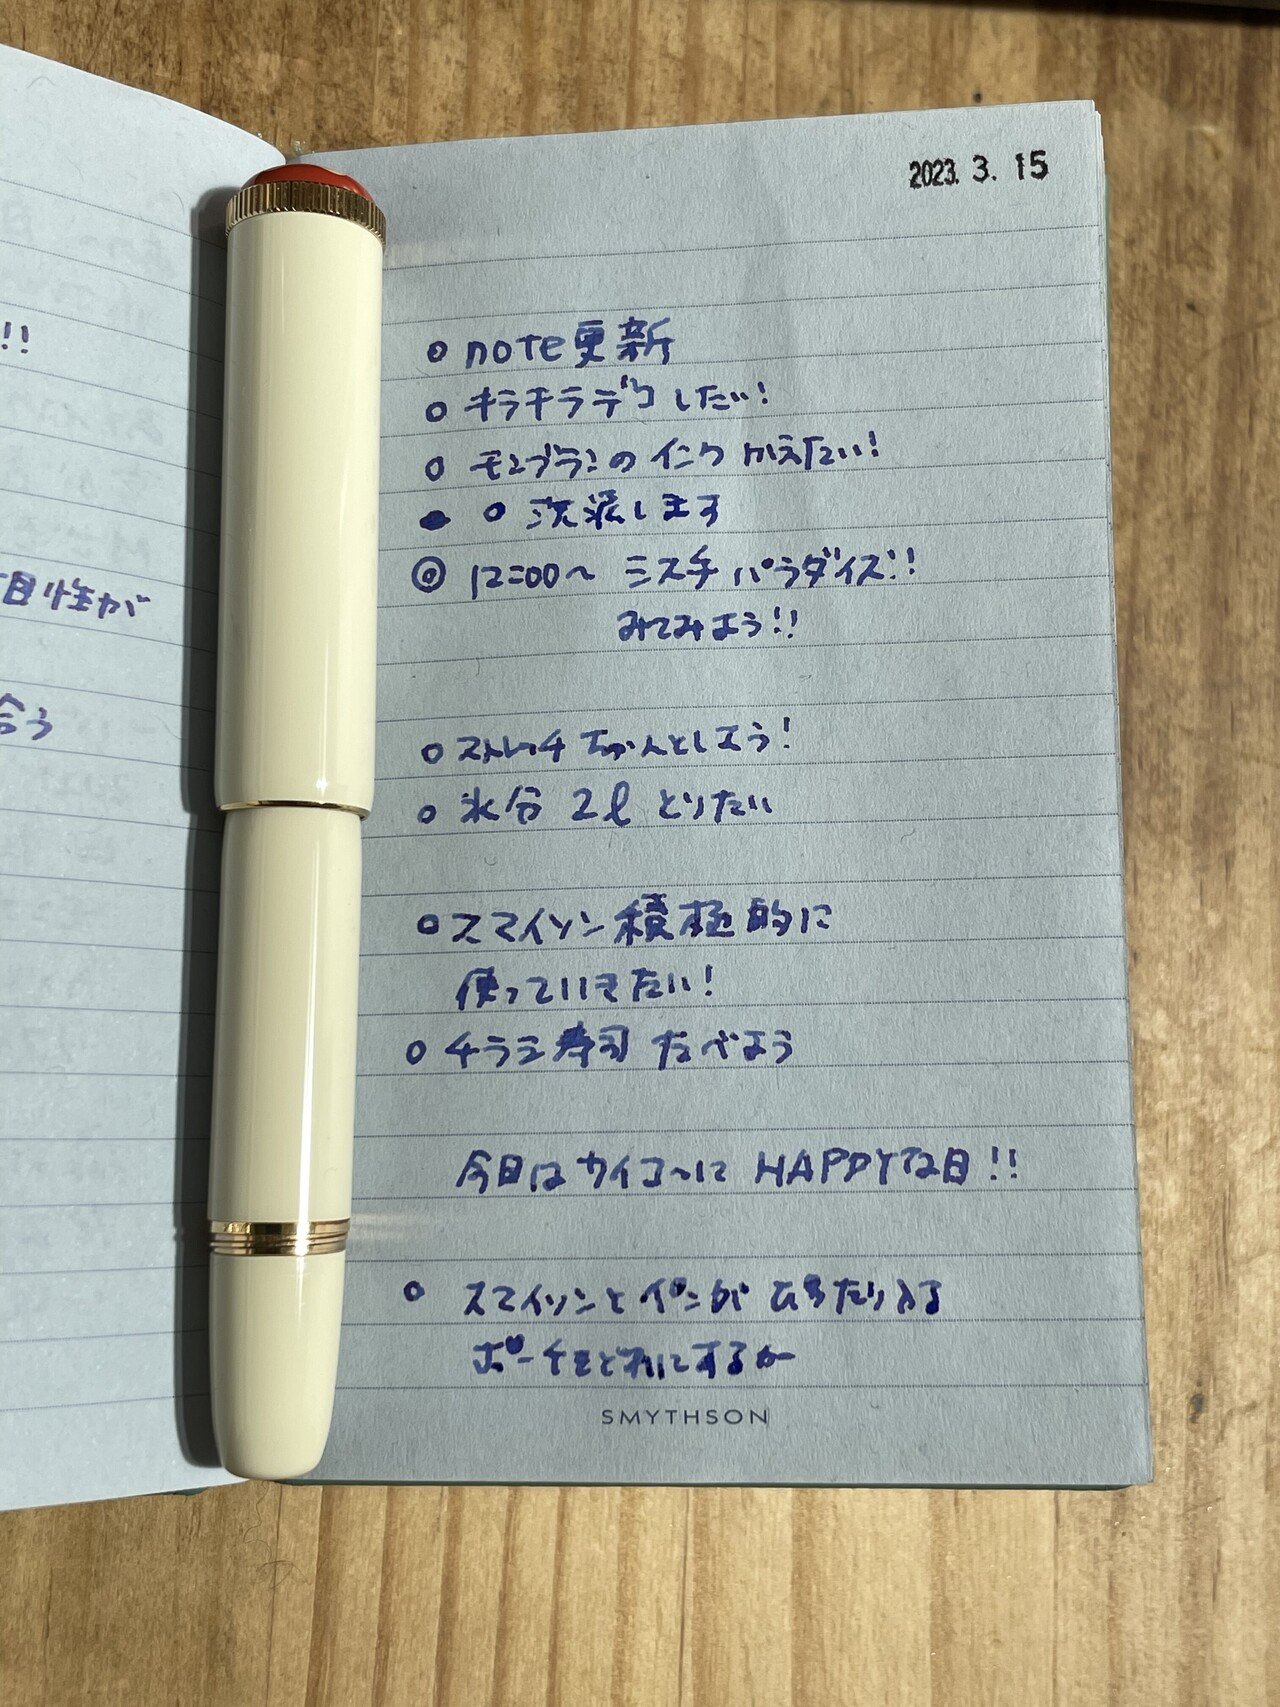 !!
目性が
合う
2023. 3. 15
○ note更新
○ キラキラデコしたい!
○ モンブランのインクかえたい!
○ 洗濯します
◎ 12:00〜 ミスチパラダイス!!
みてみよう!!
○ ストレッチちゃんとしよう!
○ 水分 2ℓ とりたい
○ スマイソン積極的に
使っていきたい!
○ チラシ寿司 たべよう
今日はサイコ〜に HAPPYな日!!
○ スマイソンとペンが ぴったり入る
ポーチをどれにするか
SMYTHSON